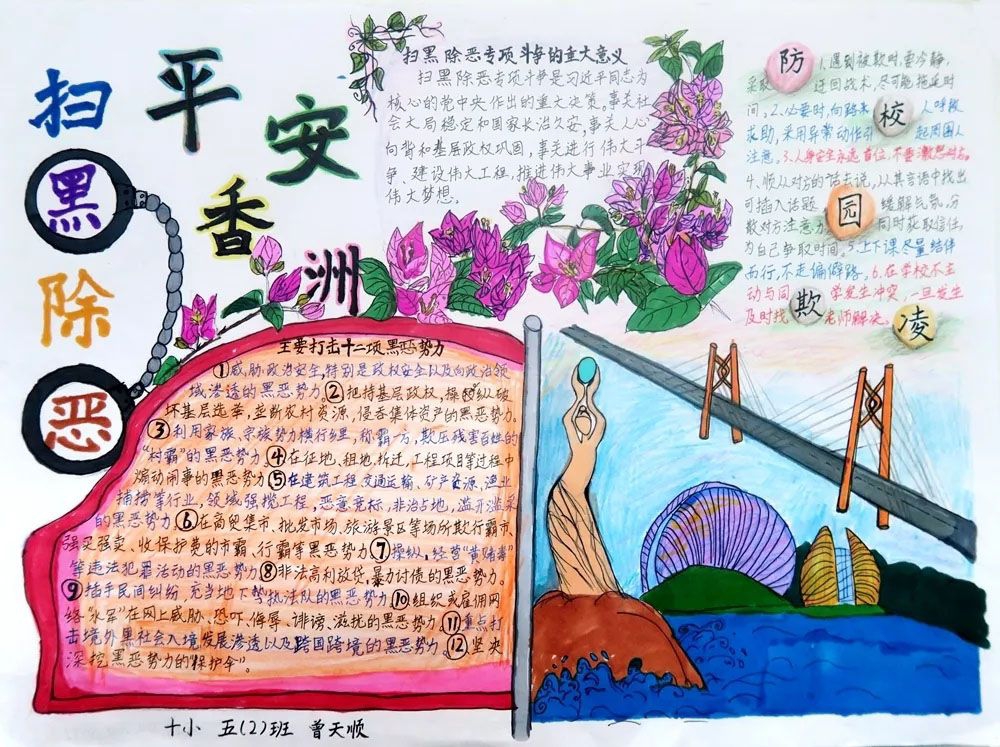 扫黑除恶
平安香洲
扫黑除恶专项斗争的重大意义
扫黑除恶专项斗争是习近平同志为
核心的党中央作出的重大决策,事关社
会大局稳定和国家长治久安,事关人心
向背和基层政权巩固,事关进行伟大斗
争,建设伟大工程,推进伟大事业实现
伟大梦想。
防校园欺凌
1.遇到被欺时,要冷静,
采取迂回战术,尽可能拖延时
间,2.必要时,向路来人呼救
求助,采用异常动作引起周围人
注意。3.人身安全永远首位,不要激怒对方。
4.顺从对方的话去说,从其言语中找出
可插入话题缓解气势。分
散对方注意力同时获取信任,
为自己争取时间。5.上下课尽量结伴
而行,不走偏僻路。6.在学校不主
动与同学发生冲突,一旦发生
及时找老师解决。
主要打击十二项黑恶势力
①威胁政治安全,特别是政权安全以及向政治领
域渗透的黑恶势力②把持基层政权,操纵破
坏基层选举,垄断农村资源,侵吞集体资产的黑恶势力。
③利用家族、宗族势力横行乡里,称霸一方,欺压残害百姓的
“村霸”的黑恶势力④在征地、租地、拆迁,工程项目等过程中
煽动闹事的黑恶势力⑤在建筑工程交通运输、矿产资源、渔业
捕捞等行业,领域强揽工程,恶意竞标,非法占地,滥开滥采
的黑恶势力⑥在商贸集市、批发市场、旅游景区等场所欺行霸市、
强买强卖、收保护费的市霸、行霸等黑恶势力⑦操纵,经营“黄赌毒”
等违法犯罪活动的黑恶势力⑧非法高利放贷,暴力讨债的黑恶势力。
⑨插手民间纠纷,充当地下执法队的黑恶势力⑩组织或雇佣网
络“水军”在网上威胁、恐吓、侮辱、诽谤、滋扰的黑恶势力⑪重点打
击境外黑社会入境发展渗透以及跨国跨境的黑恶势力。⑫坚决
深挖黑恶势力的“保护伞”。
十小 五(2)班 曾天顺